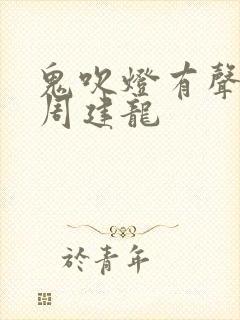 鬼吹燈有聲
周建龍
於青年